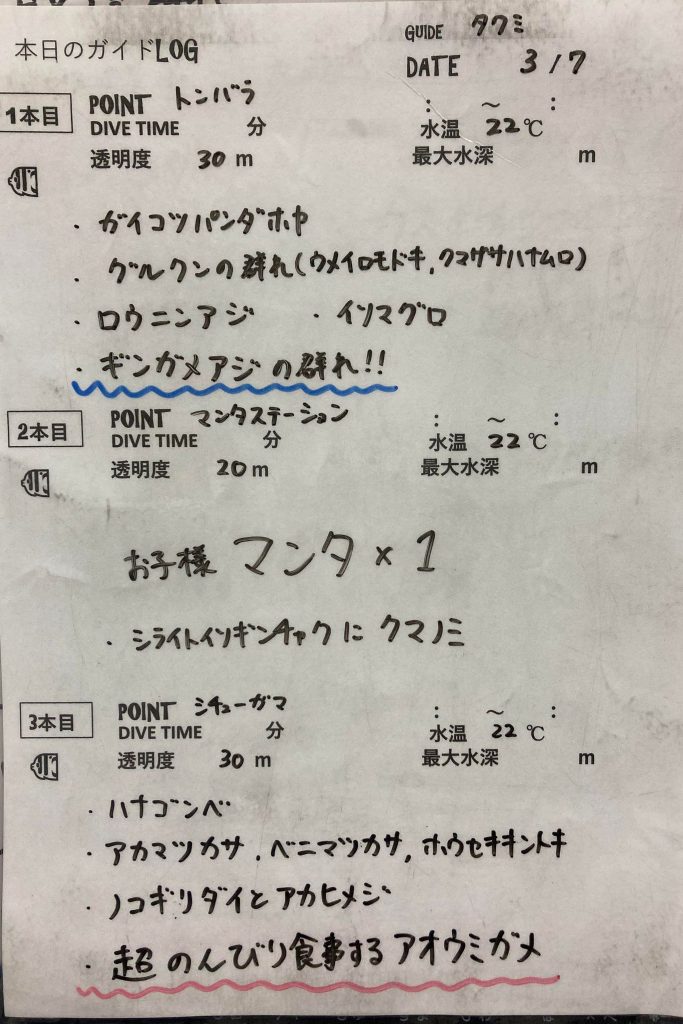 本日のガイドLOG
GUIDE タクミ
DATE 3/7
1本目 POINT トンバラ : ~ :
DIVE TIME 分 水温 22℃
透明度 30 m 最大水深 m
・ガイコツパンダホヤ
・グルクンの群れ(ウメイロモドキ,クマザサハナムロ)
・ロウニンアジ ・イソマグロ
・ギンガメアジの群れ!!
2本目 POINT マンタステーション : ~ :
DIVE TIME 分 水温 22℃
透明度 20 m 最大水深 m
お子様 マンタ×1
・シライトイソギンチャクに クマノミ
3本目 POINT シチューガマ : ~ :
DIVE TIME 分 水温 22℃
透明度 30 m 最大水深 m
・ハナゴンベ
・アカマツカサ,ベニマツカサ,ホウセキキントキ
・ノコギリダイとアカヒメジ
・超のんびり食事するアオウミガメ